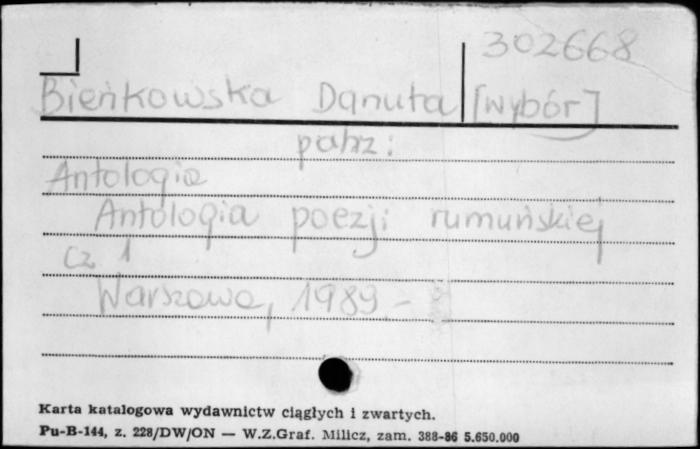 302668
Bieńkowska Danuta [wybór]
patrz:
Antologia
Antologia poezji rumuńskiej
cz 1
Warszawa, 1989 -
Karta katalogowa wydawnictw ciągłych i zwartych.
Pu-B-144, z. 228/DW/ON — W.Z.Graf. Milicz, zam. 388-86 5.650.000